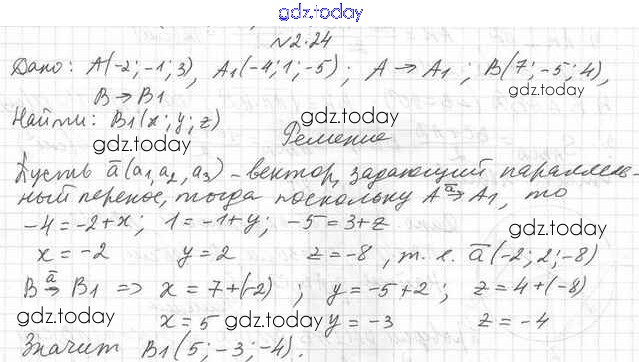 gdz.today
№2.24
Дано: A(-2; -1; 3), A1(-4; 1; -5); A → A1; B(7; -5; 4),
B → B1
gdz.today
Найти: B1(x; y; z)
gdz.today
gdz.today
Решение
Пусть a̅(a1, a2, a3) - вектор, задающий параллель-
ный перенос, тогда поскольку A →a̅ A1, то
-4 = -2+x; 1 = -1+y; -5 = 3+z
gdz.today
x = -2 y = 2 z = -8, т. е. a̅(-2; 2; -8)
B →a̅ B1 => x = 7+(-2); y = -5+2; z = 4+(-8)
gdz.today gdz.today
x = 5 y = -3 z = -4
Значит B1(5; -3; -4).